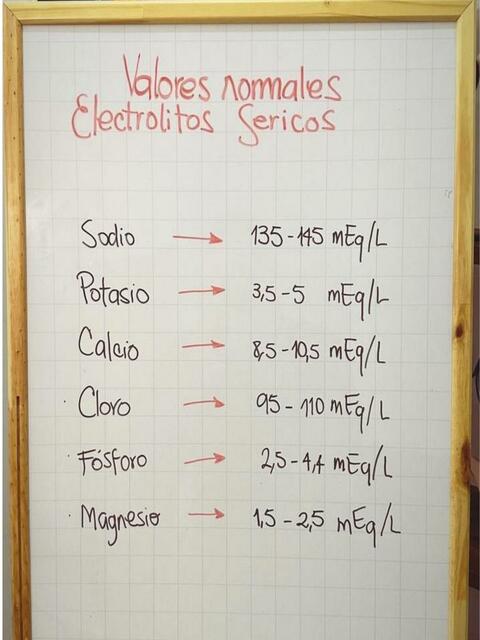 Valores normales
Electrolitos Sericos
Sodio → 135-145 mEq/L
Potasio → 3,5-5 mEq/L
Calcio → 8,5-10,5 mEq/L
· Cloro → 95-110 mEq/L
· Fósforo → 2,5-4,4 mEq/L
· Magnesio → 1,5-2,5 mEq/L